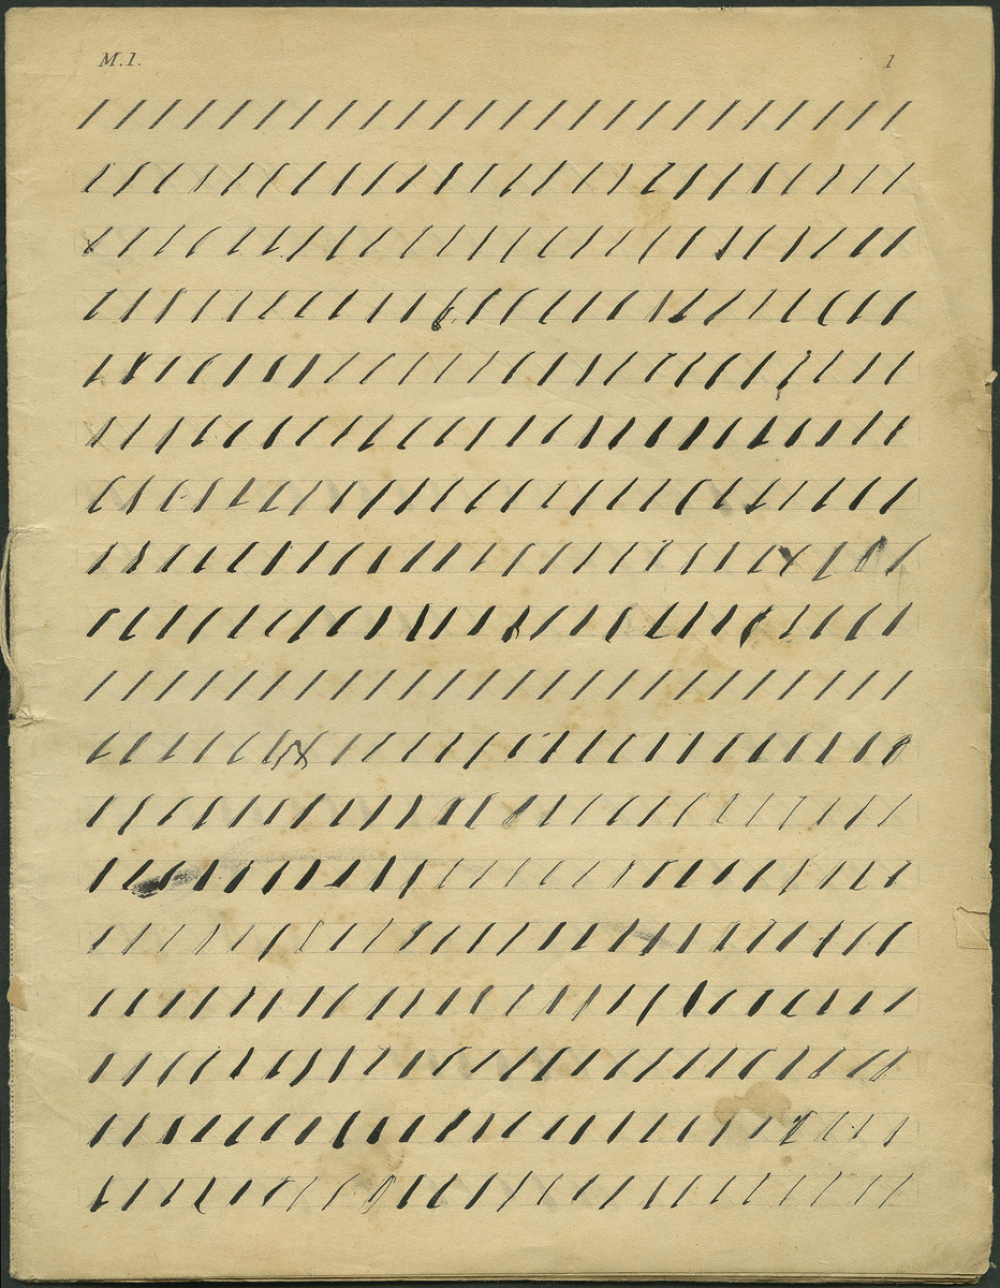 M.1. 1